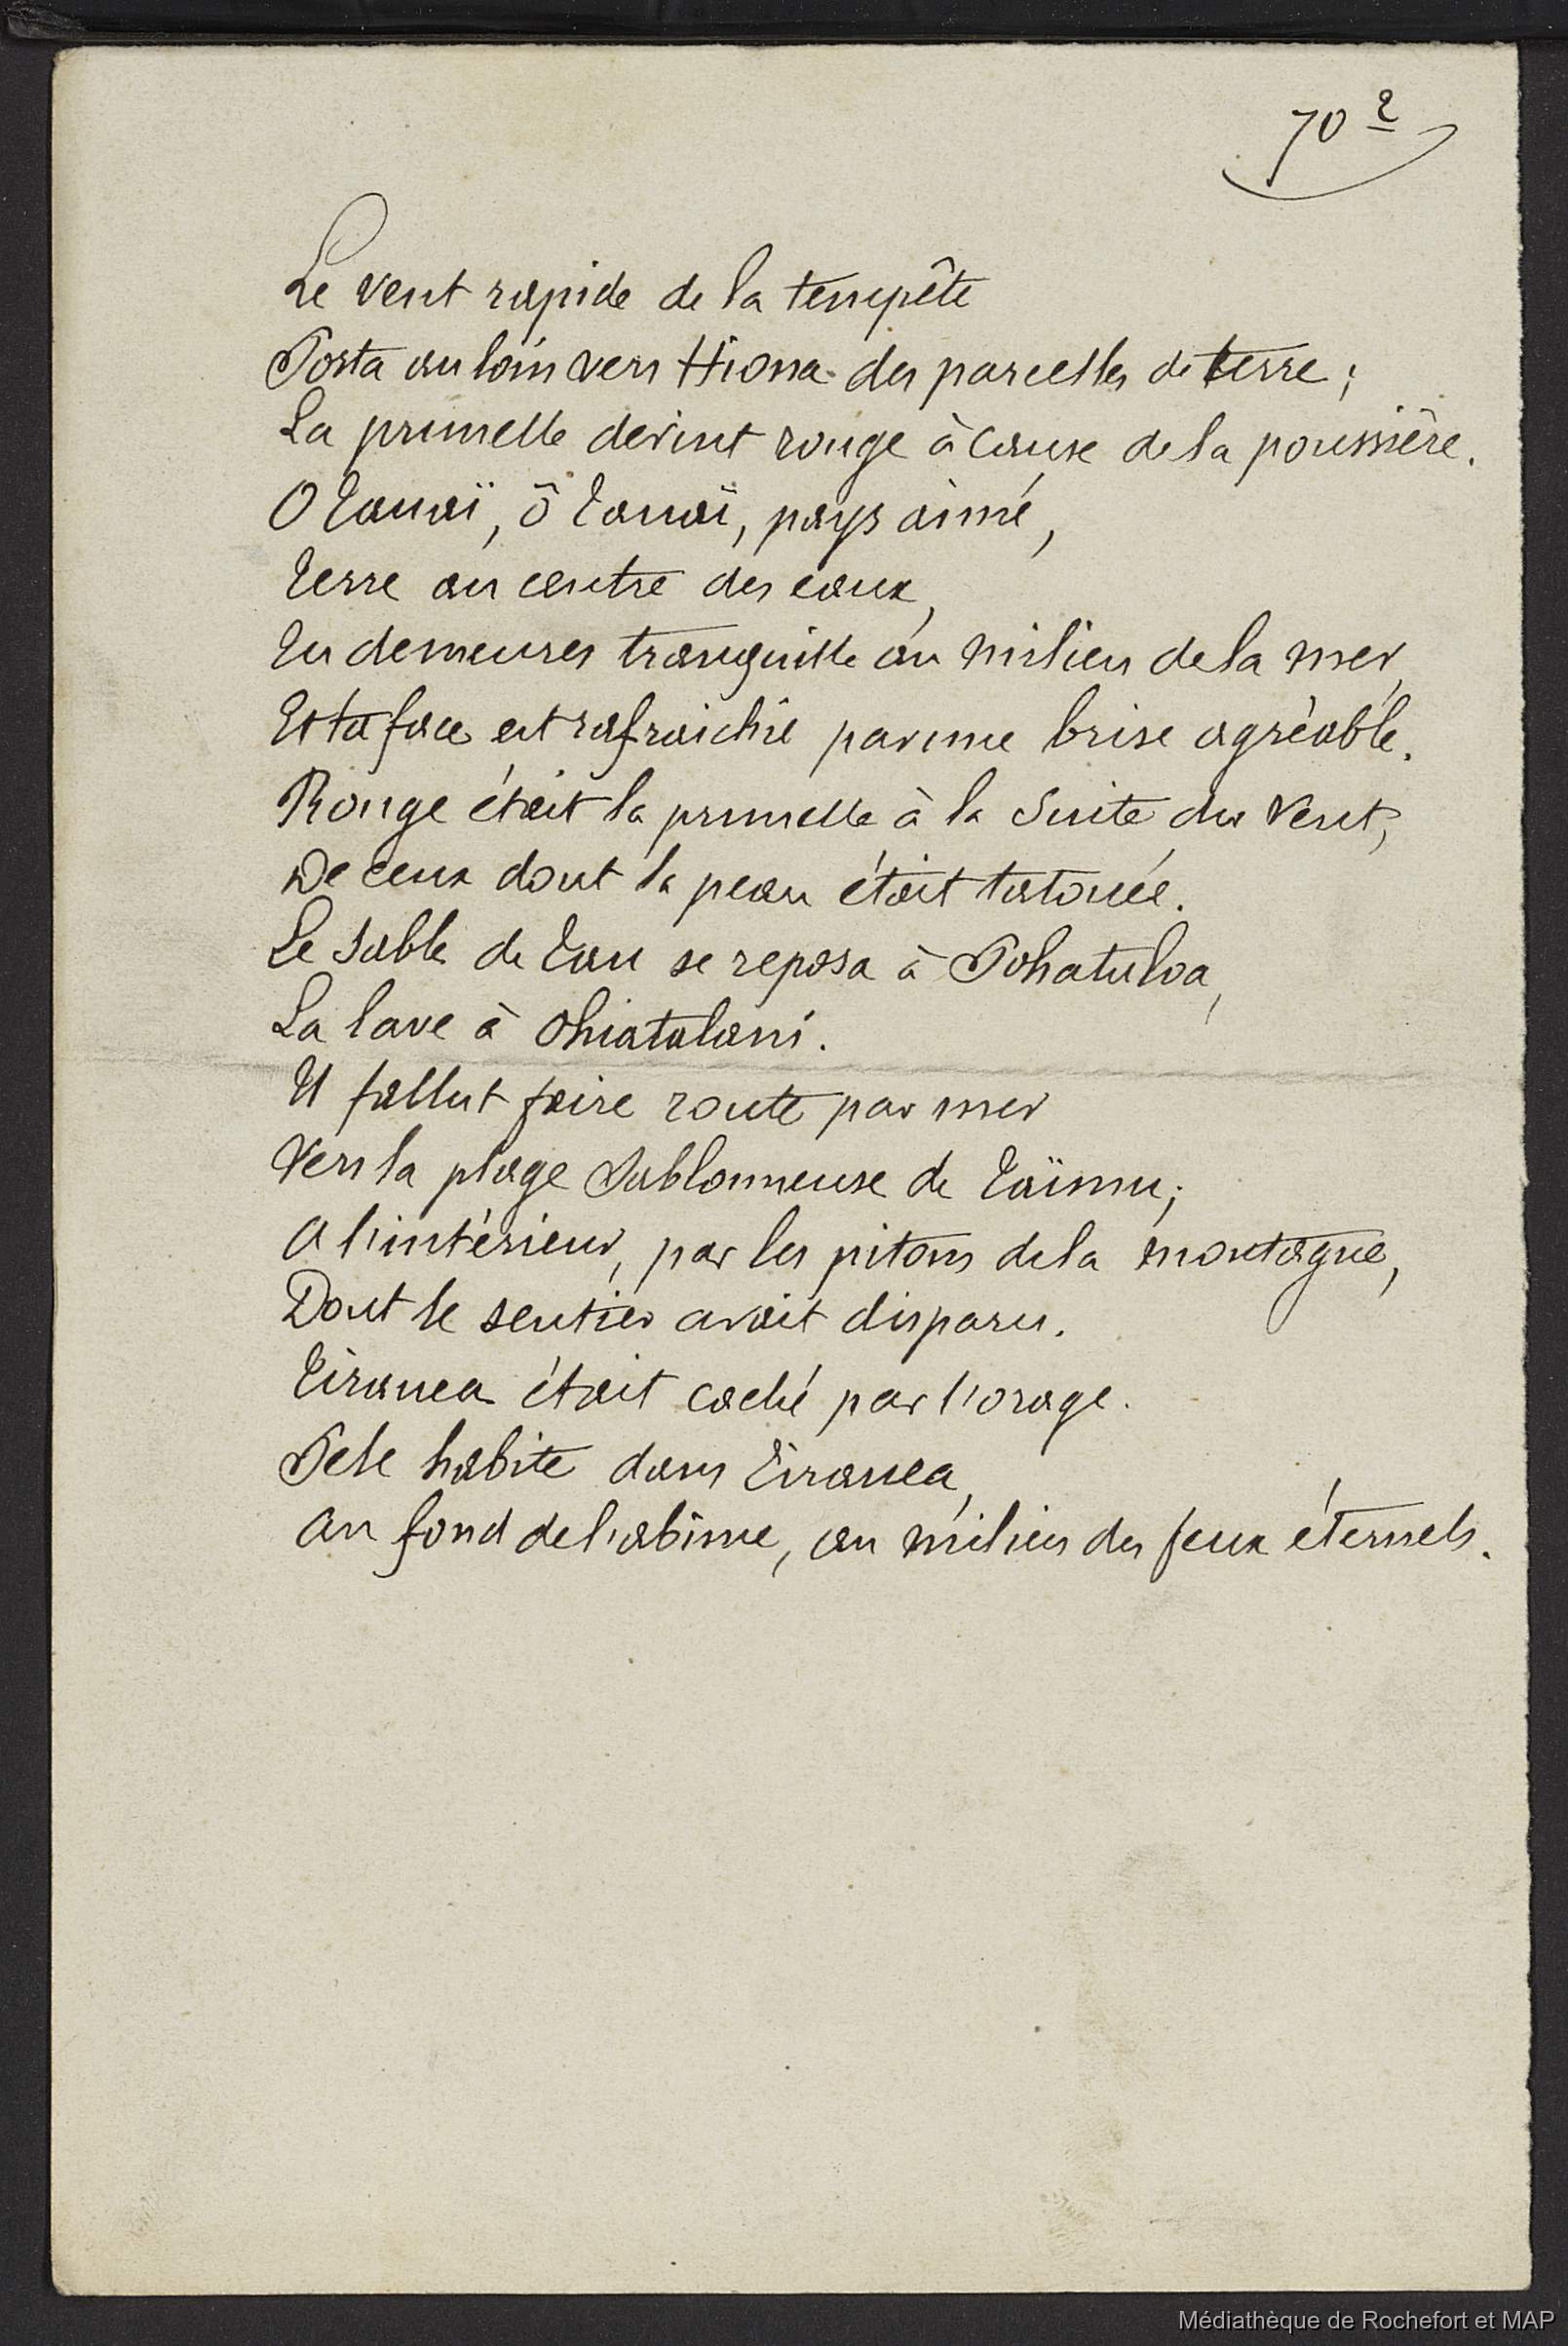 70 2
Le vent rapide de la tempête
Porta au loin vers Hiona des parcelles de terre ;
La prunelle devint rouge à cause de la poussière.
O Tauaï, ô Tauaï, pays aimé,
Terre au centre des eaux,
Tu demeures tranquille au milieu de la mer,
Et ta face est rafraichie par une brise agréable.
Rouge était la prunelle à la suite du vent,
De ceux dont la peau était tatouée.
Le sable de Tau se reposa à Pohatuloa,
La lave à Ohiatalani.
Il fallut faire route par mer
Vers la plage sablonneuse de Taïmu ;
A l'intérieur, par les pitons de la montagne,
Dont le sentier avait disparu.
Tirauea était caché par l'orage.
Pele habite dans Tirauea,
Au fond de l'abîme, au milieu des feux éternels.
Médiathèque de Rochefort et MAP